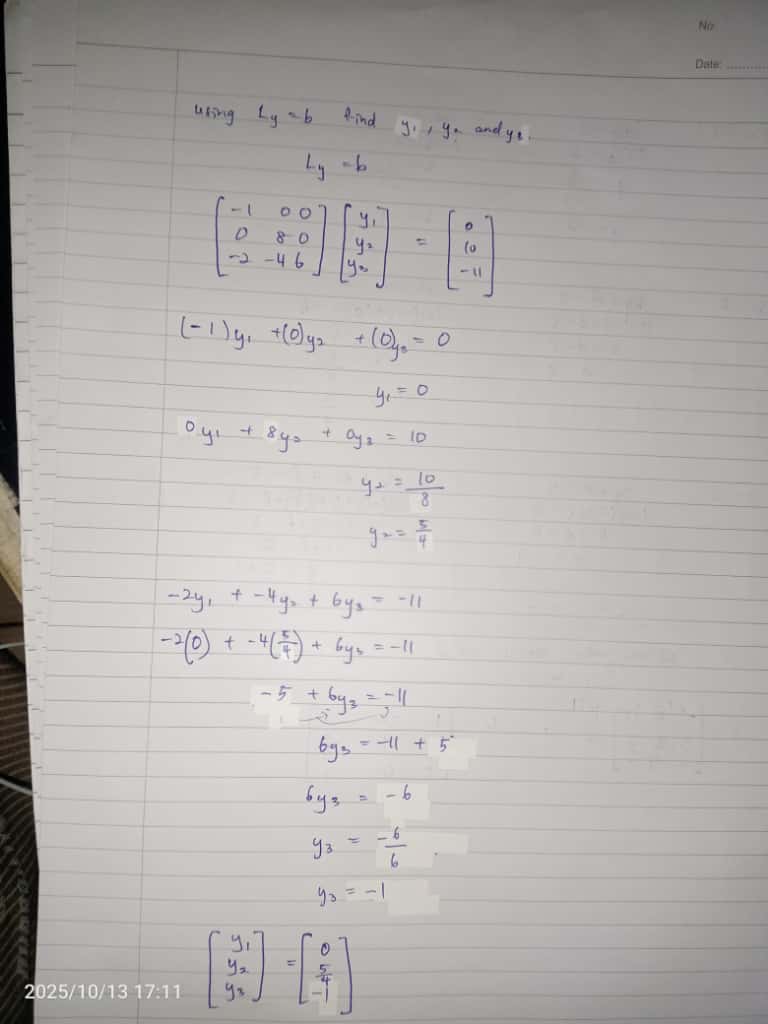 No
Date: ..........
using Ly = b find y₁, y₂ and y₃.
Ly = b
[-1 0 0; 0 8 0; -2 -4 6] [y₁; y₂; y₃] = [0; 10; -11]
(-1)y₁ + (0)y₂ + (0)y₃ = 0
y₁ = 0
0y₁ + 8y₂ + 0y₃ = 10
y₂ = 10/8
y₂ = 5/4
-2y₁ + -4y₂ + 6y₃ = -11
-2(0) + -4(5/4) + 6y₃ = -11
-5 + 6y₃ = -11
6y₃ = -11 + 5
6y₃ = -6
y₃ = -6/6
y₃ = -1
[y₁; y₂; y₃] = [0; 5/4; -1]
2025/10/13 17:11